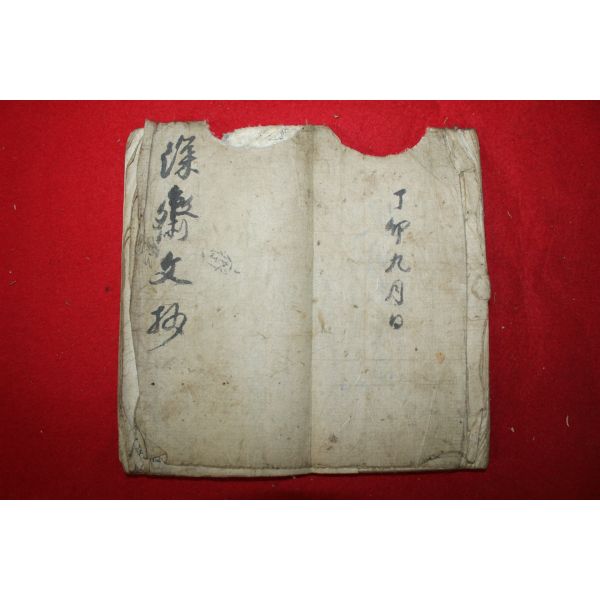 丁卯九月日
深齋文抄